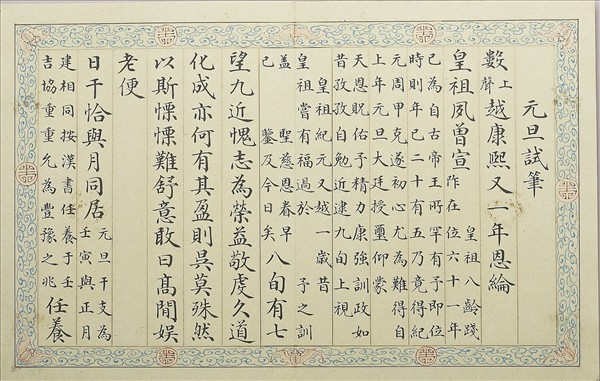 元旦試筆
數上聲越康熙又一年恩綸
皇祖夙曾宣皇祖八齡踐
阼在位六十一年
已為自古帝王所罕有予即位
時則年已二十有五乃竟得紀
元周甲克遂初心尤為難得自
上年元旦大廷授璽仰蒙
天恩貺佑予精力康強訓政如
昔孜孜自勉近逮九旬上視
皇祖紀元又越一歲昔
皇祖嘗有福過於予之訓
蓋聖慈恩眷早
已鑒及今日矣八旬有七
望九近愧志為榮益敬虔久道
化成亦何有其盈則吳莫殊然
以斯慄慄難舒意敢曰高閒娛
老便
日干恰與月同居元旦干支為
壬寅與正月
建相同按漢書任養于壬
吉協重重允為豐豫之兆任養